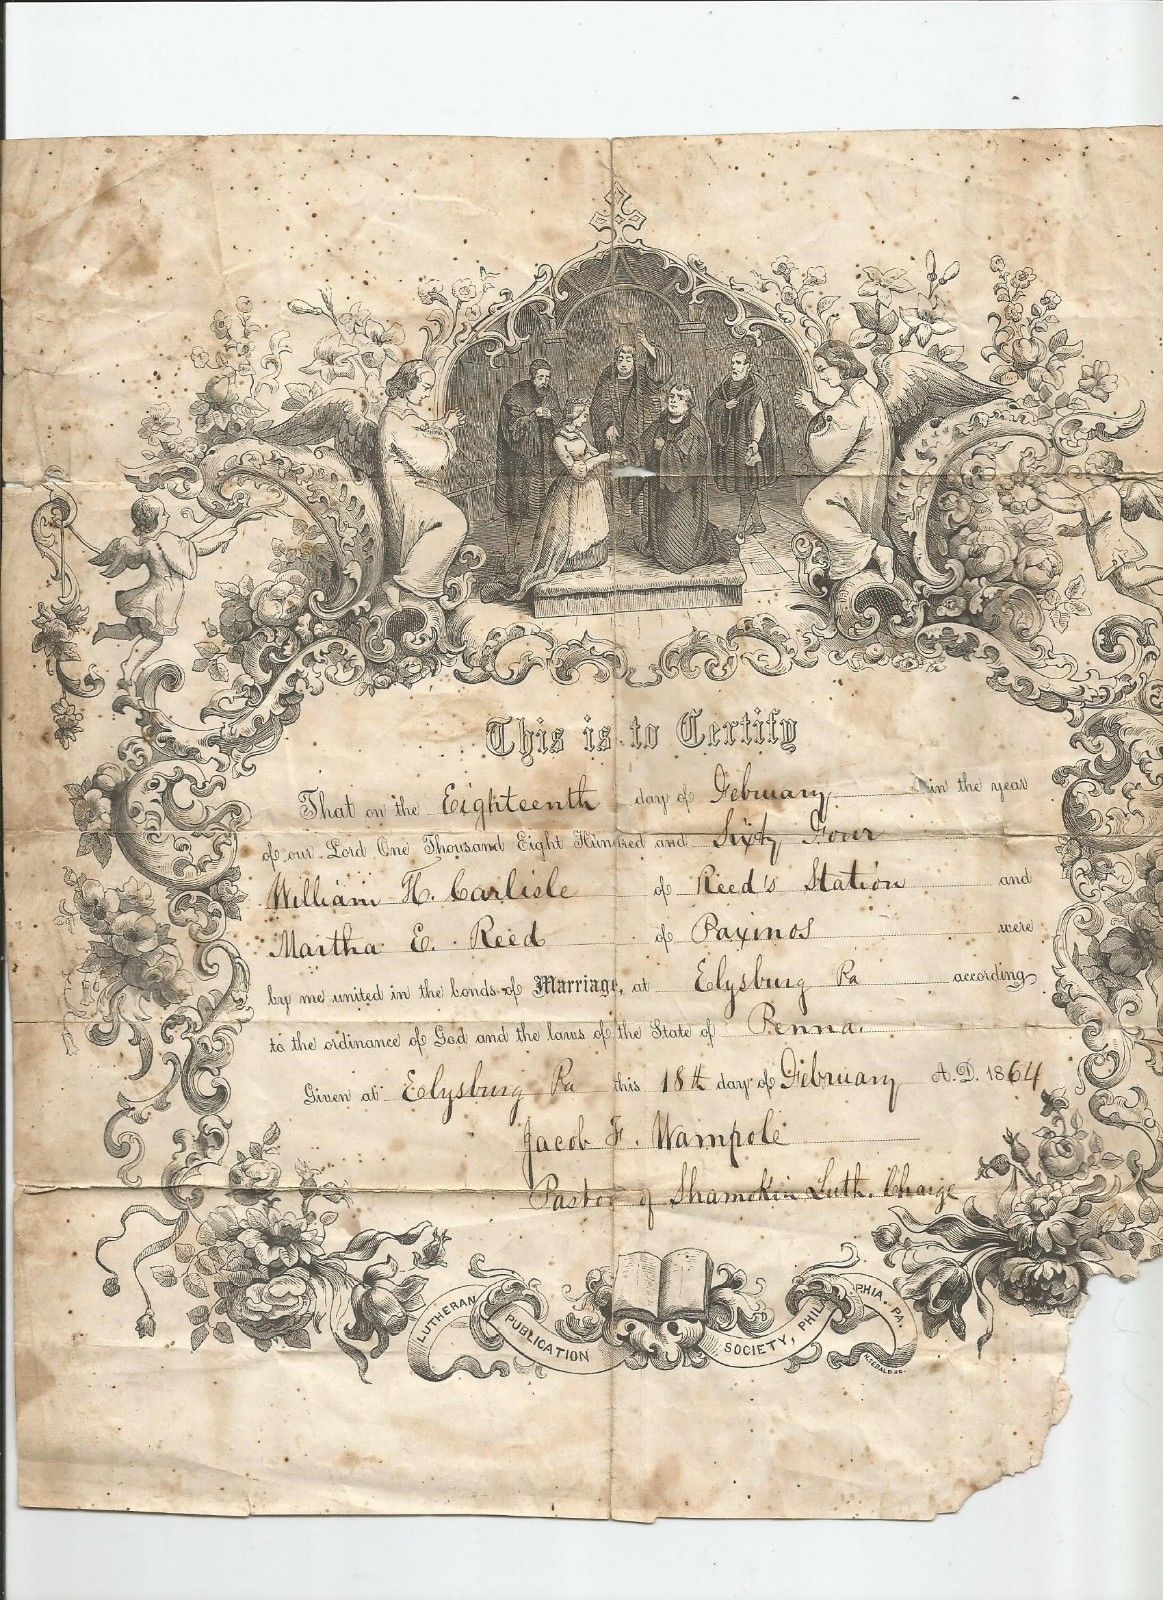 This is to Certify
That on the Eighteenth day of February in the year
of our Lord One Thousand Eight Hundred and Sixty Four
William H. Carlisle of Reed's Station and
Martha E. Reed of Paxinos were
by me united in the bonds of Marriage, at Elysburg Pa according
to the ordinance of God and the laws of the State of Penna.
Given at Elysburg Pa this 18th day of February A.D. 1864
Jacob F. Wampole
Pastor of Shamokin Luth. Charge
LUTHERAN PUBLICATION SOCIETY, PHIL PHIA. PA.